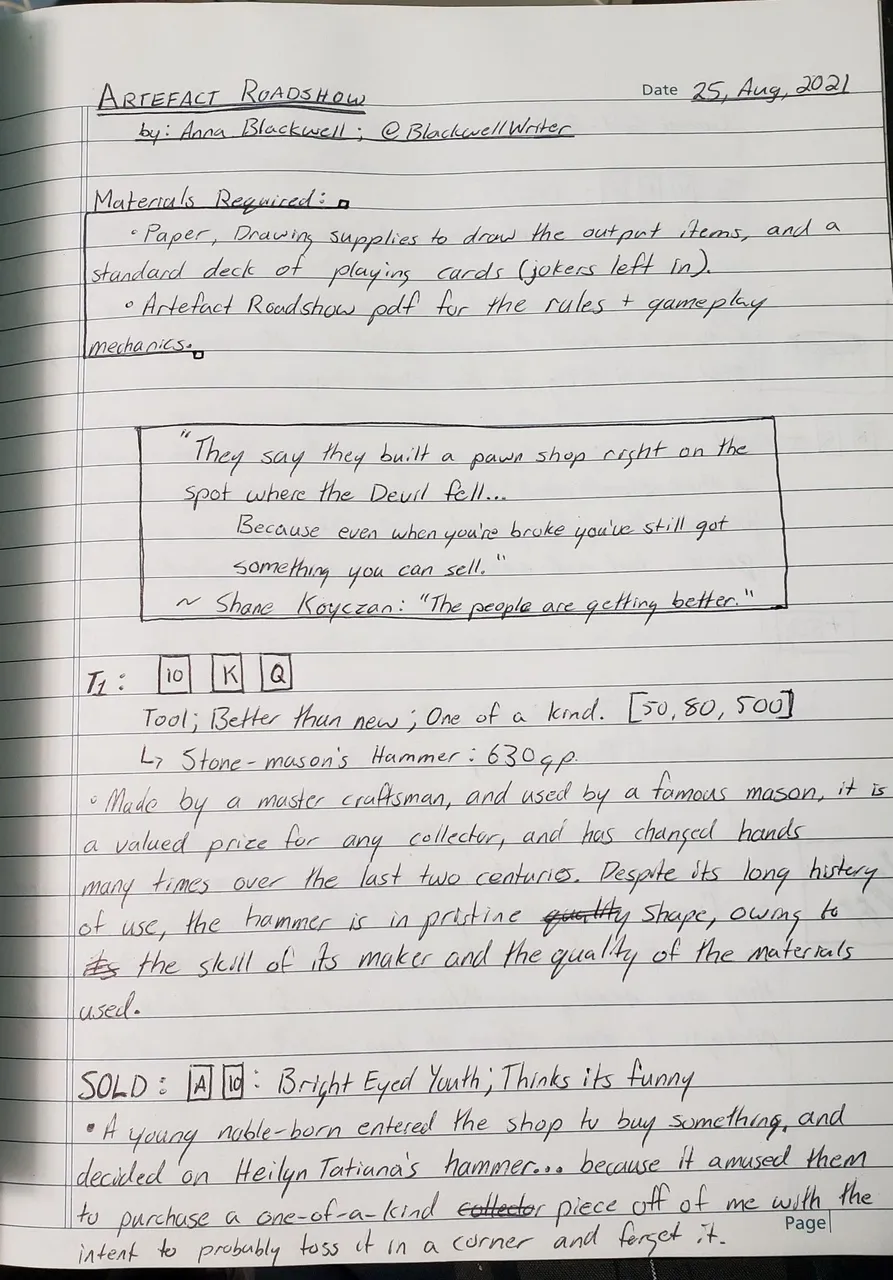 ARTEFACT ROADSHOW
Date 25, Aug, 2021
by: Anna Blackwell ; @BlackwellWriter
Materials Required:
• Paper, Drawing supplies to draw the output items, and a
standard deck of playing cards (jokers left in).
• Artefact Roadshow pdf for the rules + gameplay
mechanics.
"They say they built a pawn shop right on the
spot where the Devil fell...
Because even when you're broke you've still got
something you can sell."
~ Shane Koyczan: "The people are getting better."
T1: 10 K Q
Tool; Better than new; One of a kind. [50, 80, 500]
↳ Stone-mason's Hammer: 630gp.
• Made by a master craftsman, and used by a famous mason, it is
a valued prize for any collector, and has changed hands
many times over the last two centuries. Despite its long history
of use, the hammer is in pristine quality shape, owing to
its the skill of its maker and the quality of the materials
used.
SOLD: A 10: Bright Eyed Youth; Thinks its funny
• A young noble-born entered the shop to buy something, and
decided on Heilyn Tatiana's hammer... because it amused them
to purchase a one-of-a-kind collector piece off of me with the
intent to probably toss it in a corner and forget it.
Page